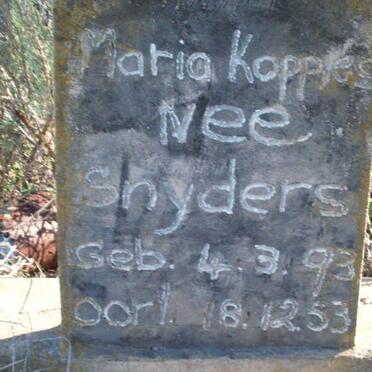 Maria Kopples
Nee
Snyders
Geb. 4.3.93
oorl. 18.12.53